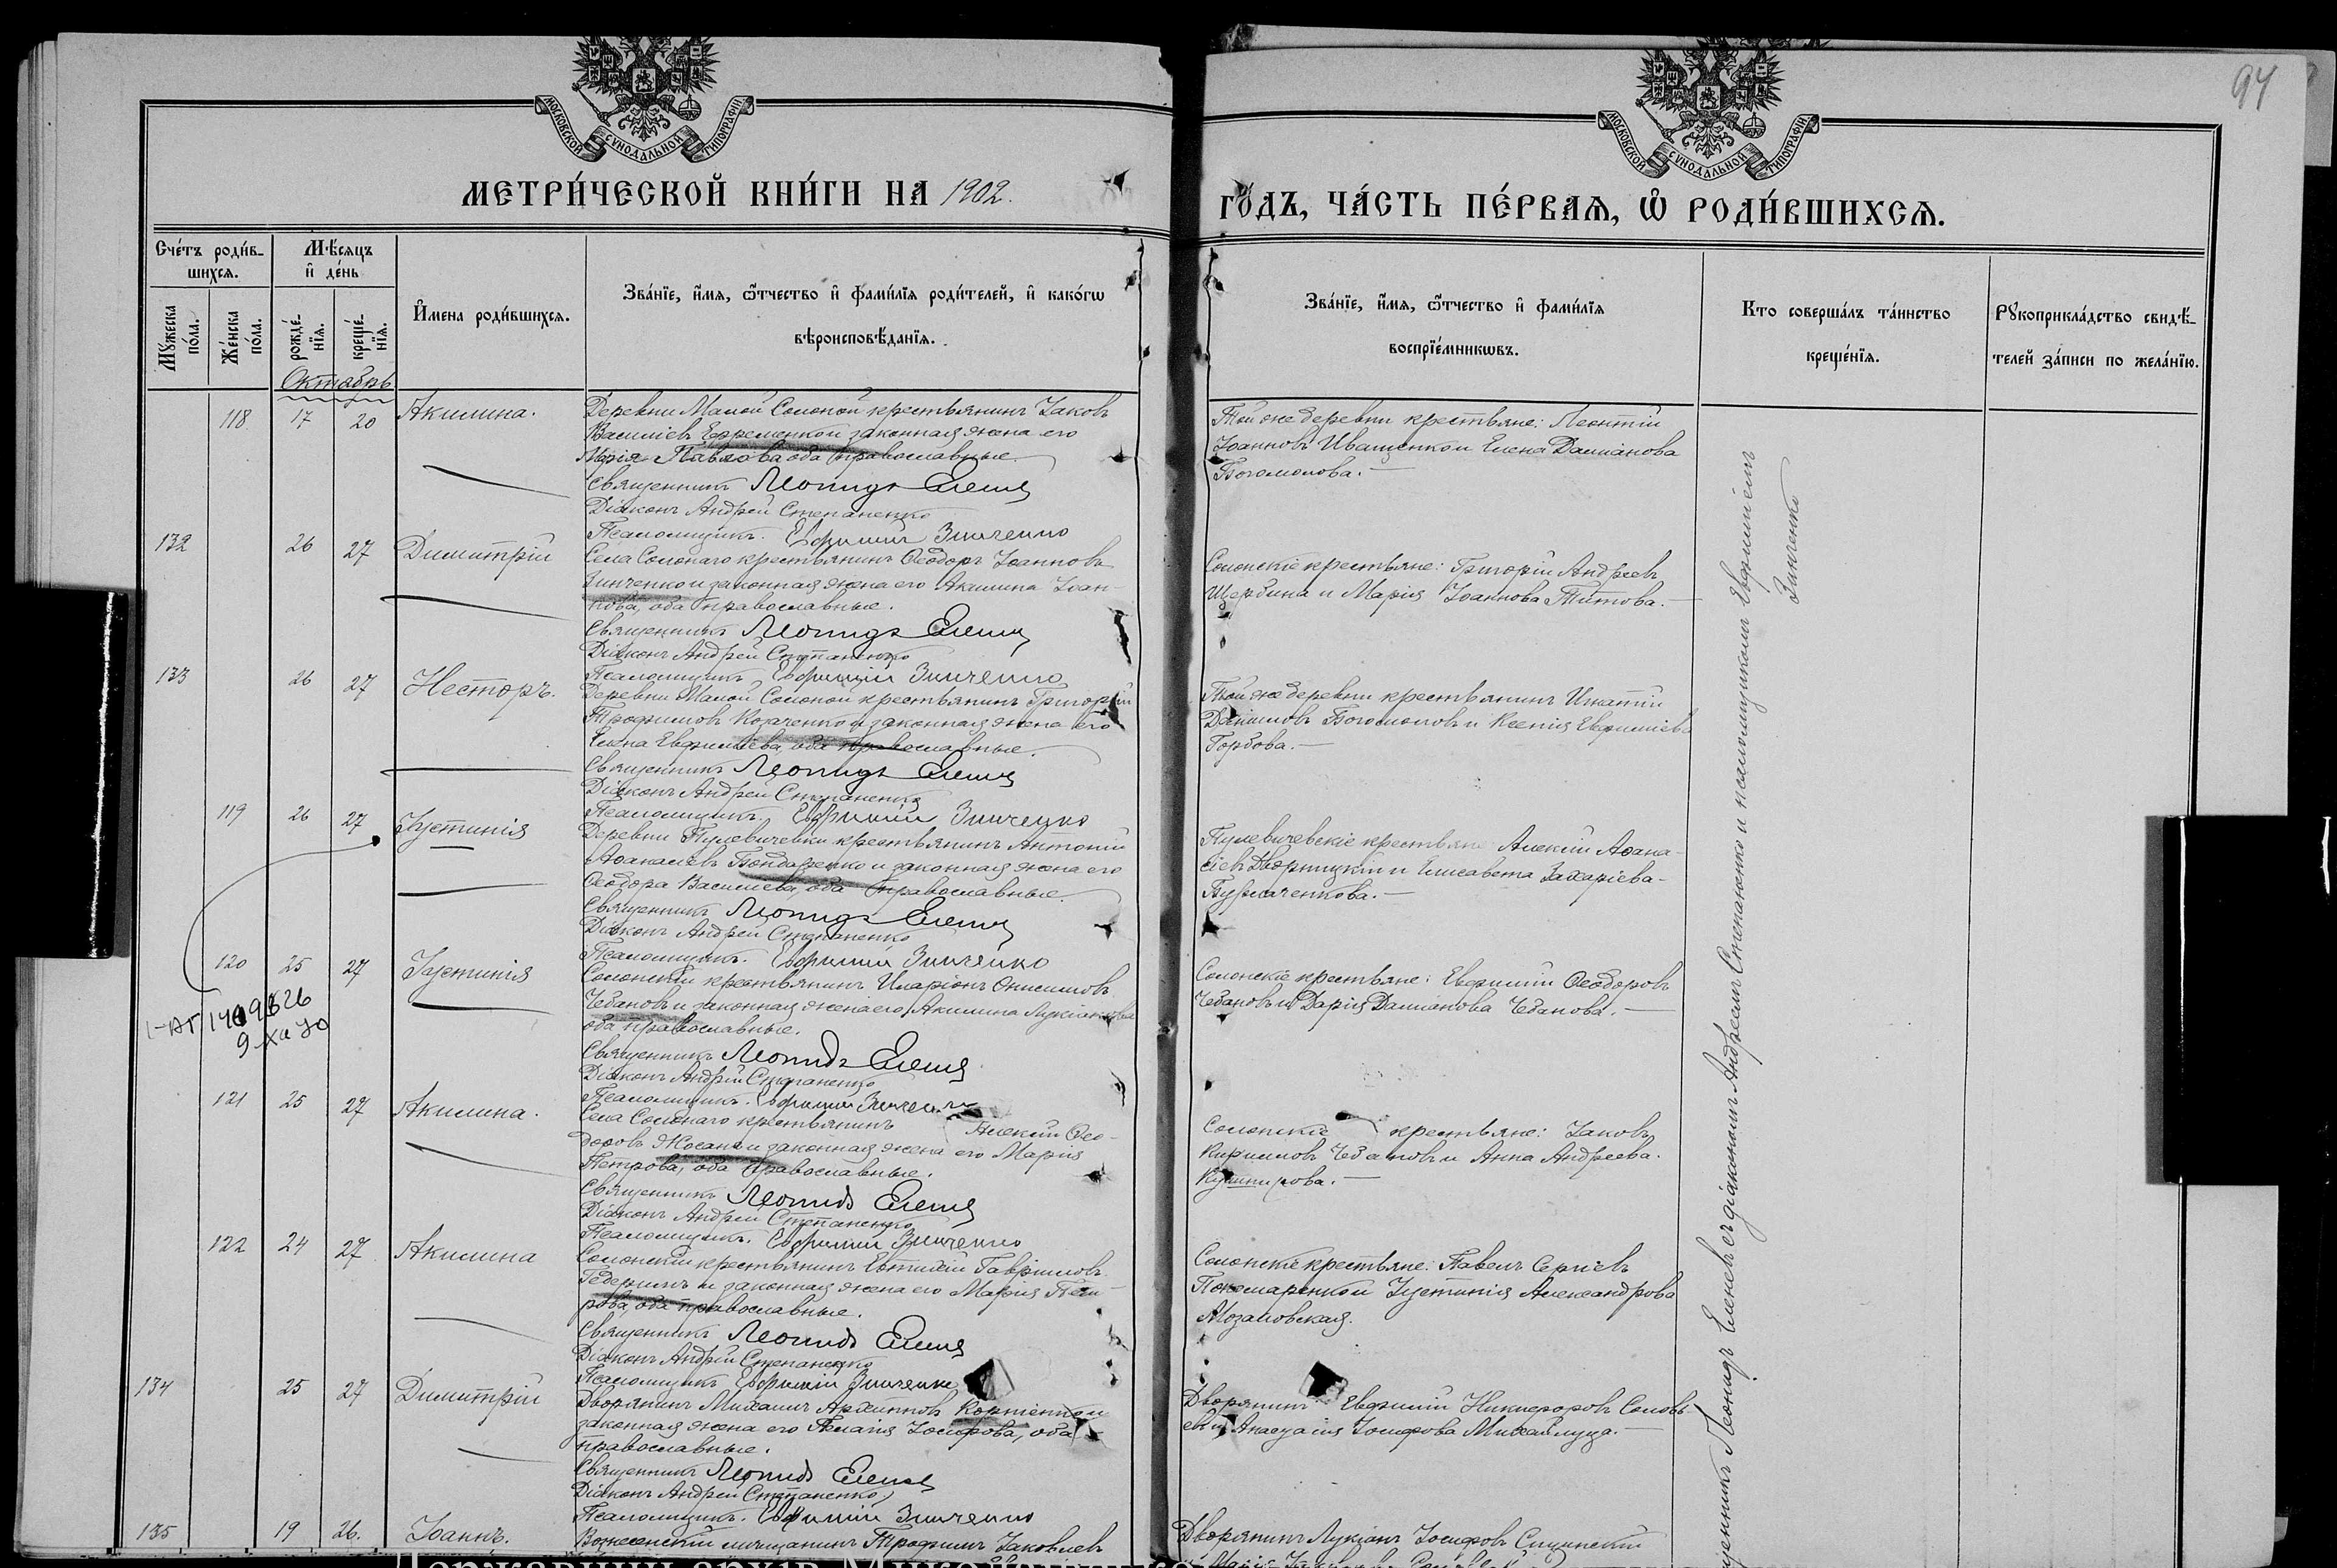 94
МОСКОВСКОЙ СѴНОДАЛЬНОЙ ТИПОГРАФІИ
МОСКОВСКОЙ СѴНОДАЛЬНОЙ ТИПОГРАФІИ
МЕТРИ́ЧЕСКОЙ КНИ́ГИ НА 1902.
ГО́ДЪ, ЧА́СТЬ ПЕ́РВАѦ, Ѽ РОДИ́ВШИХСѦ.
Сче́тъ роди́в-
шихсѧ.
Мѣсѧцъ
и де́нь
Мꙋжеска по́ла.
Же́нска по́ла.
рожде́нїѧ.
креще́нїѧ.
И҆мена роди́вшихсѧ.
Зва́нїе, и҆́мѧ, ѻ҆́тчество и҆ фами́лїѧ роди́телей, и҆ како́гѡ
вѣроисповѣ́данїѧ.
Зва́нїе, и҆́мѧ, ѻ҆́тчество и҆ фами́лїѧ
воспрїе́мникѡвъ.
Кто соверша́лъ та́инство
креще́нїѧ.
Рꙋкоприкла́дство свидѣ́-
телей за́писи по жела́нїю.
Октябрь
118 17 20 Акилина.
Деревни Малой Солоной крестьянинъ Іаковъ
Василіевъ Ефременко и законная жена его
Марія Павлова, оба православные.
Священникъ Леонидъ Еленев
Діаконъ Андрей Степаненко
Псаломщикъ. Евфимій Зинченко
Той же деревни крестьяне: Леонтій
Іоанновъ Иващенко и Елена Даміанова
Богомолова.
132 26 27 Димитрій
Села Солонаго крестьянинъ Ѳеодоръ Іоанновъ
Зинченко и законная жена его Акилина Іоан-
нова, оба православные.
Священникъ Леонидъ Еленев
Діаконъ Андрей Степаненко
Псаломщикъ, Евфимій Зинченко
Солонскіе крестьяне: Григорій Андреевъ
Щербина и Марія Іоаннова Титова.
133 26 27 Несторъ.
Деревни Малой Солоной крестьянинъ Григорій
Трофимовъ Козаченко и законная жена его
Елена Евфиміева, оба православные.
Священникъ Леонидъ Еленев
Діаконъ Андрей Степаненко
Псаломщикъ. Евфимій Зинченко
Той же деревни крестьянинъ Игнатій
Даниловъ Богомоловъ и Ксенія Евфиміева
Горбова.
119 26 27 Іустинія
Деревни Пулевичевки крестьянинъ Антоній
Аѳанасіевъ Бондаренко и законная жена его
Ѳеодора Василіева, оба православные.
Священникъ Леонидъ Еленев
Діаконъ Андрей Степаненко
Псаломщикъ. Евфимій Зинченко
Пулевичевскіе крестьяне Алексій Аѳана-
сіевъ Дворницкій и Елисавета Захаріева
Бурлаченкова.
120 25 27 Іустинія
Солонскій крестьянинъ Иларіонъ Онисимовъ
Чебановъ и законная жена его Акилина Лукіанова
оба православные.
Священникъ Леонидъ Еленев
Діаконъ Андрей Степаненко
Псаломщикъ. Евфимій Зинченко
Солонскіе крестьяне: Евфимій Ѳеодоровъ
Чебановъ и Дарія Даміанова Чебанова.
121 25 27 Акилина.
Села Солонаго крестьянинъ Алексій Ѳео-
доровъ и законная жена его Марія
Петрова, оба православные.
Священникъ Леонидъ Еленев
Діаконъ Андрей Степаненко
Псаломщикъ. Евфимій Зинченко
Солонскіе крестьяне: Іаковъ
Кирилловъ Чебановъ и Анна Андреева
Кушнирова.
122 24 27 Акилина
Солонскій крестьянинъ Евтихій Гавриловъ
и законная жена его Марія Пет-
рова, оба православные.
Священникъ Леонидъ Еленев
Діаконъ Андрей Степаненко
Псаломщикъ Евфимій Зинченко
Солонскіе крестьяне: Павелъ Сергіевъ
и Іустинія Александрова
Мозаловская.
134 25 27 Димитрій
Дворянинъ Михаилъ Архиповъ Корніенко и
законная жена его Пелагія Іосифова, оба
православные.
Священникъ Леонидъ Еленев
Діаконъ Андрей Степаненко
Псаломщикъ. Евфимій Зинченко
Дворянинъ Евфимій Никифоровъ Соловь-
евъ и Анастасія Іосифова Михайлуца.
135 19 26. Іоаннъ.
Вознесенскій мѣщанинъ Трофимъ Іаковлевъ
Дворянинъ Лукіанъ Іосифовъ
Священникъ Леонидъ Еленевъ съ діакономъ Андреемъ Степаненко и псаломщикомъ Евфиміемъ
Зинченко